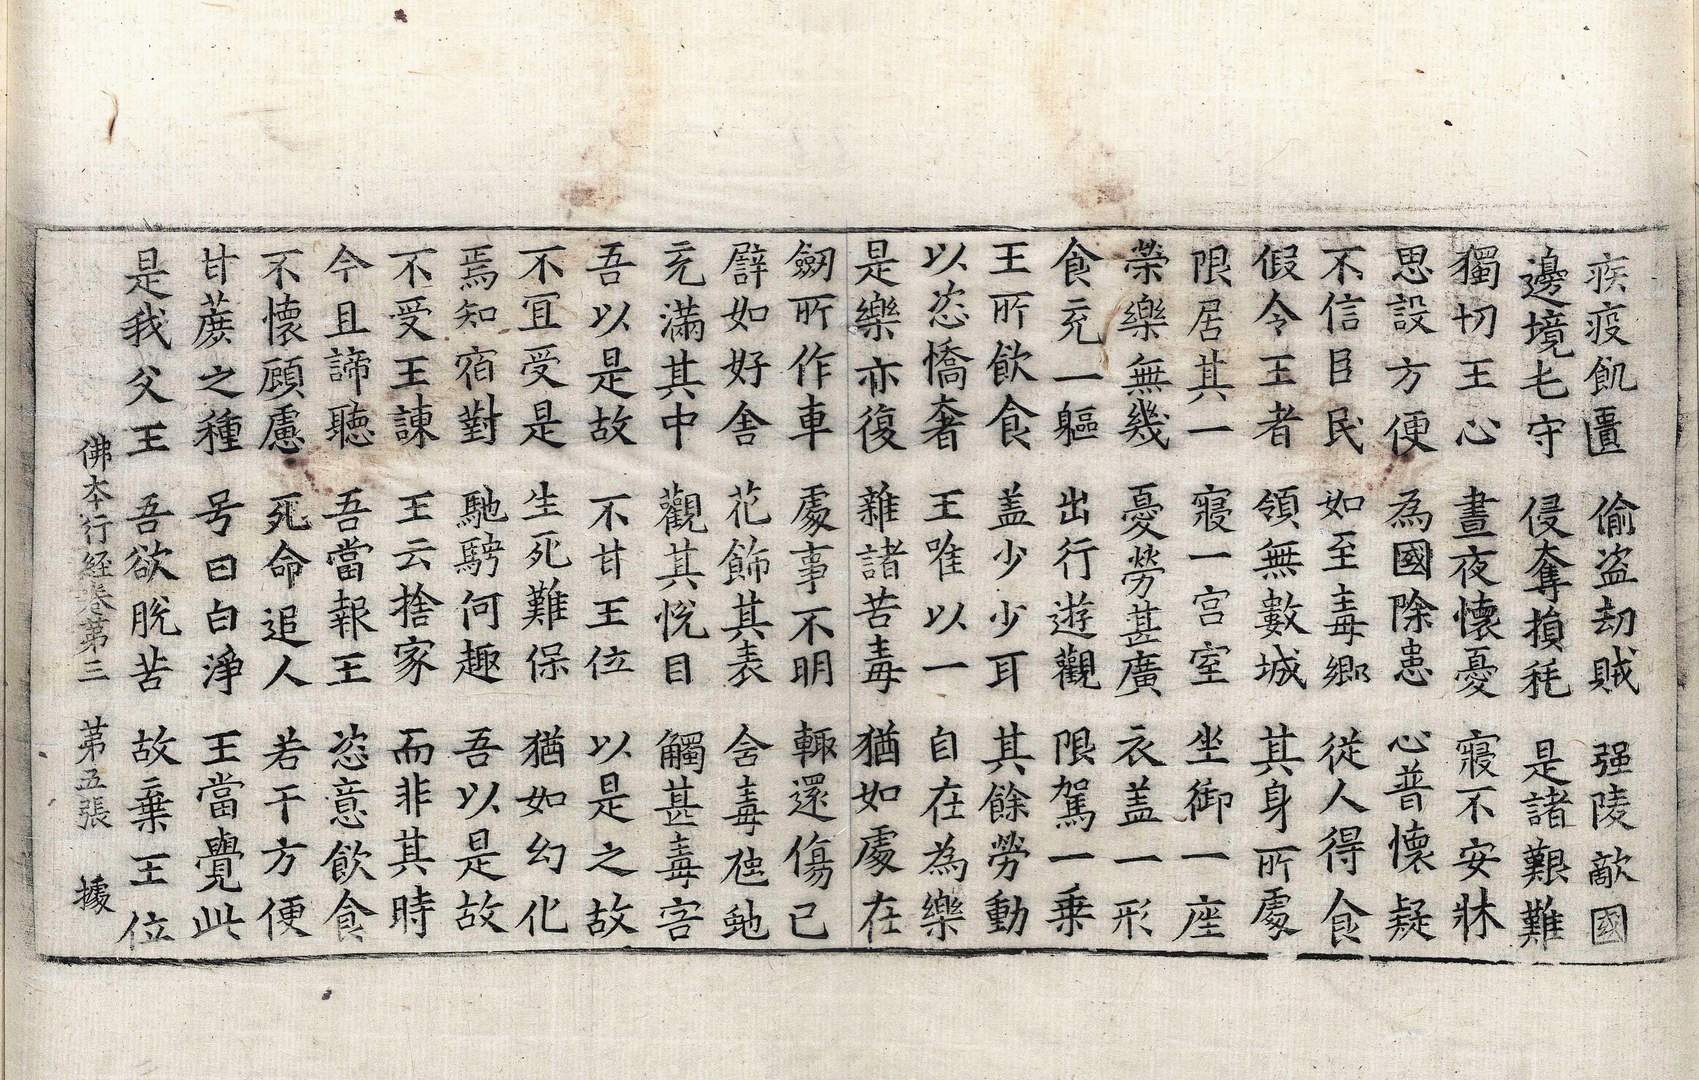 疾疫飢匱 偷盜劫賊 强陵敵國
邊境屯守 侵奪損秏 是諸艱難
獨切王心 晝夜懷憂 寢不安牀
思設方便 為國除患 心普懷疑
不信臣民 如至毒鄉 從人得食
假令王者 領無數城 其身所處
限居其一 寢一宫室 坐御一座
榮樂無幾 憂勞甚廣 衣盖一形
食充一軀 出行遊觀 限駕一乗
王所飲食 盖少少耳 其餘勞動
以恣憍奢 王唯以一 自在為樂
是樂亦復 雜諸苦毒 猶如處在
劒所作車 處事不明 輙還傷己
譬如好舍 花飾其表 舍毒虺虵
充滿其中 觀其悅目 觸甚毒害
吾以是故 不甘王位 以是之故
不冝受是 生死難保 猶如幻化
焉知宿對 馳騁何趣 吾以是故
不受王諫 王云捨家 而非其時
今且諦聽 吾當報王 恣意飲食
不懷顧慮 死命追人 若干方便
甘蔗之種 号曰白淨 王當覺此
是我父王 吾欲脫苦 故棄王位
佛本行經卷第三 第五張 據